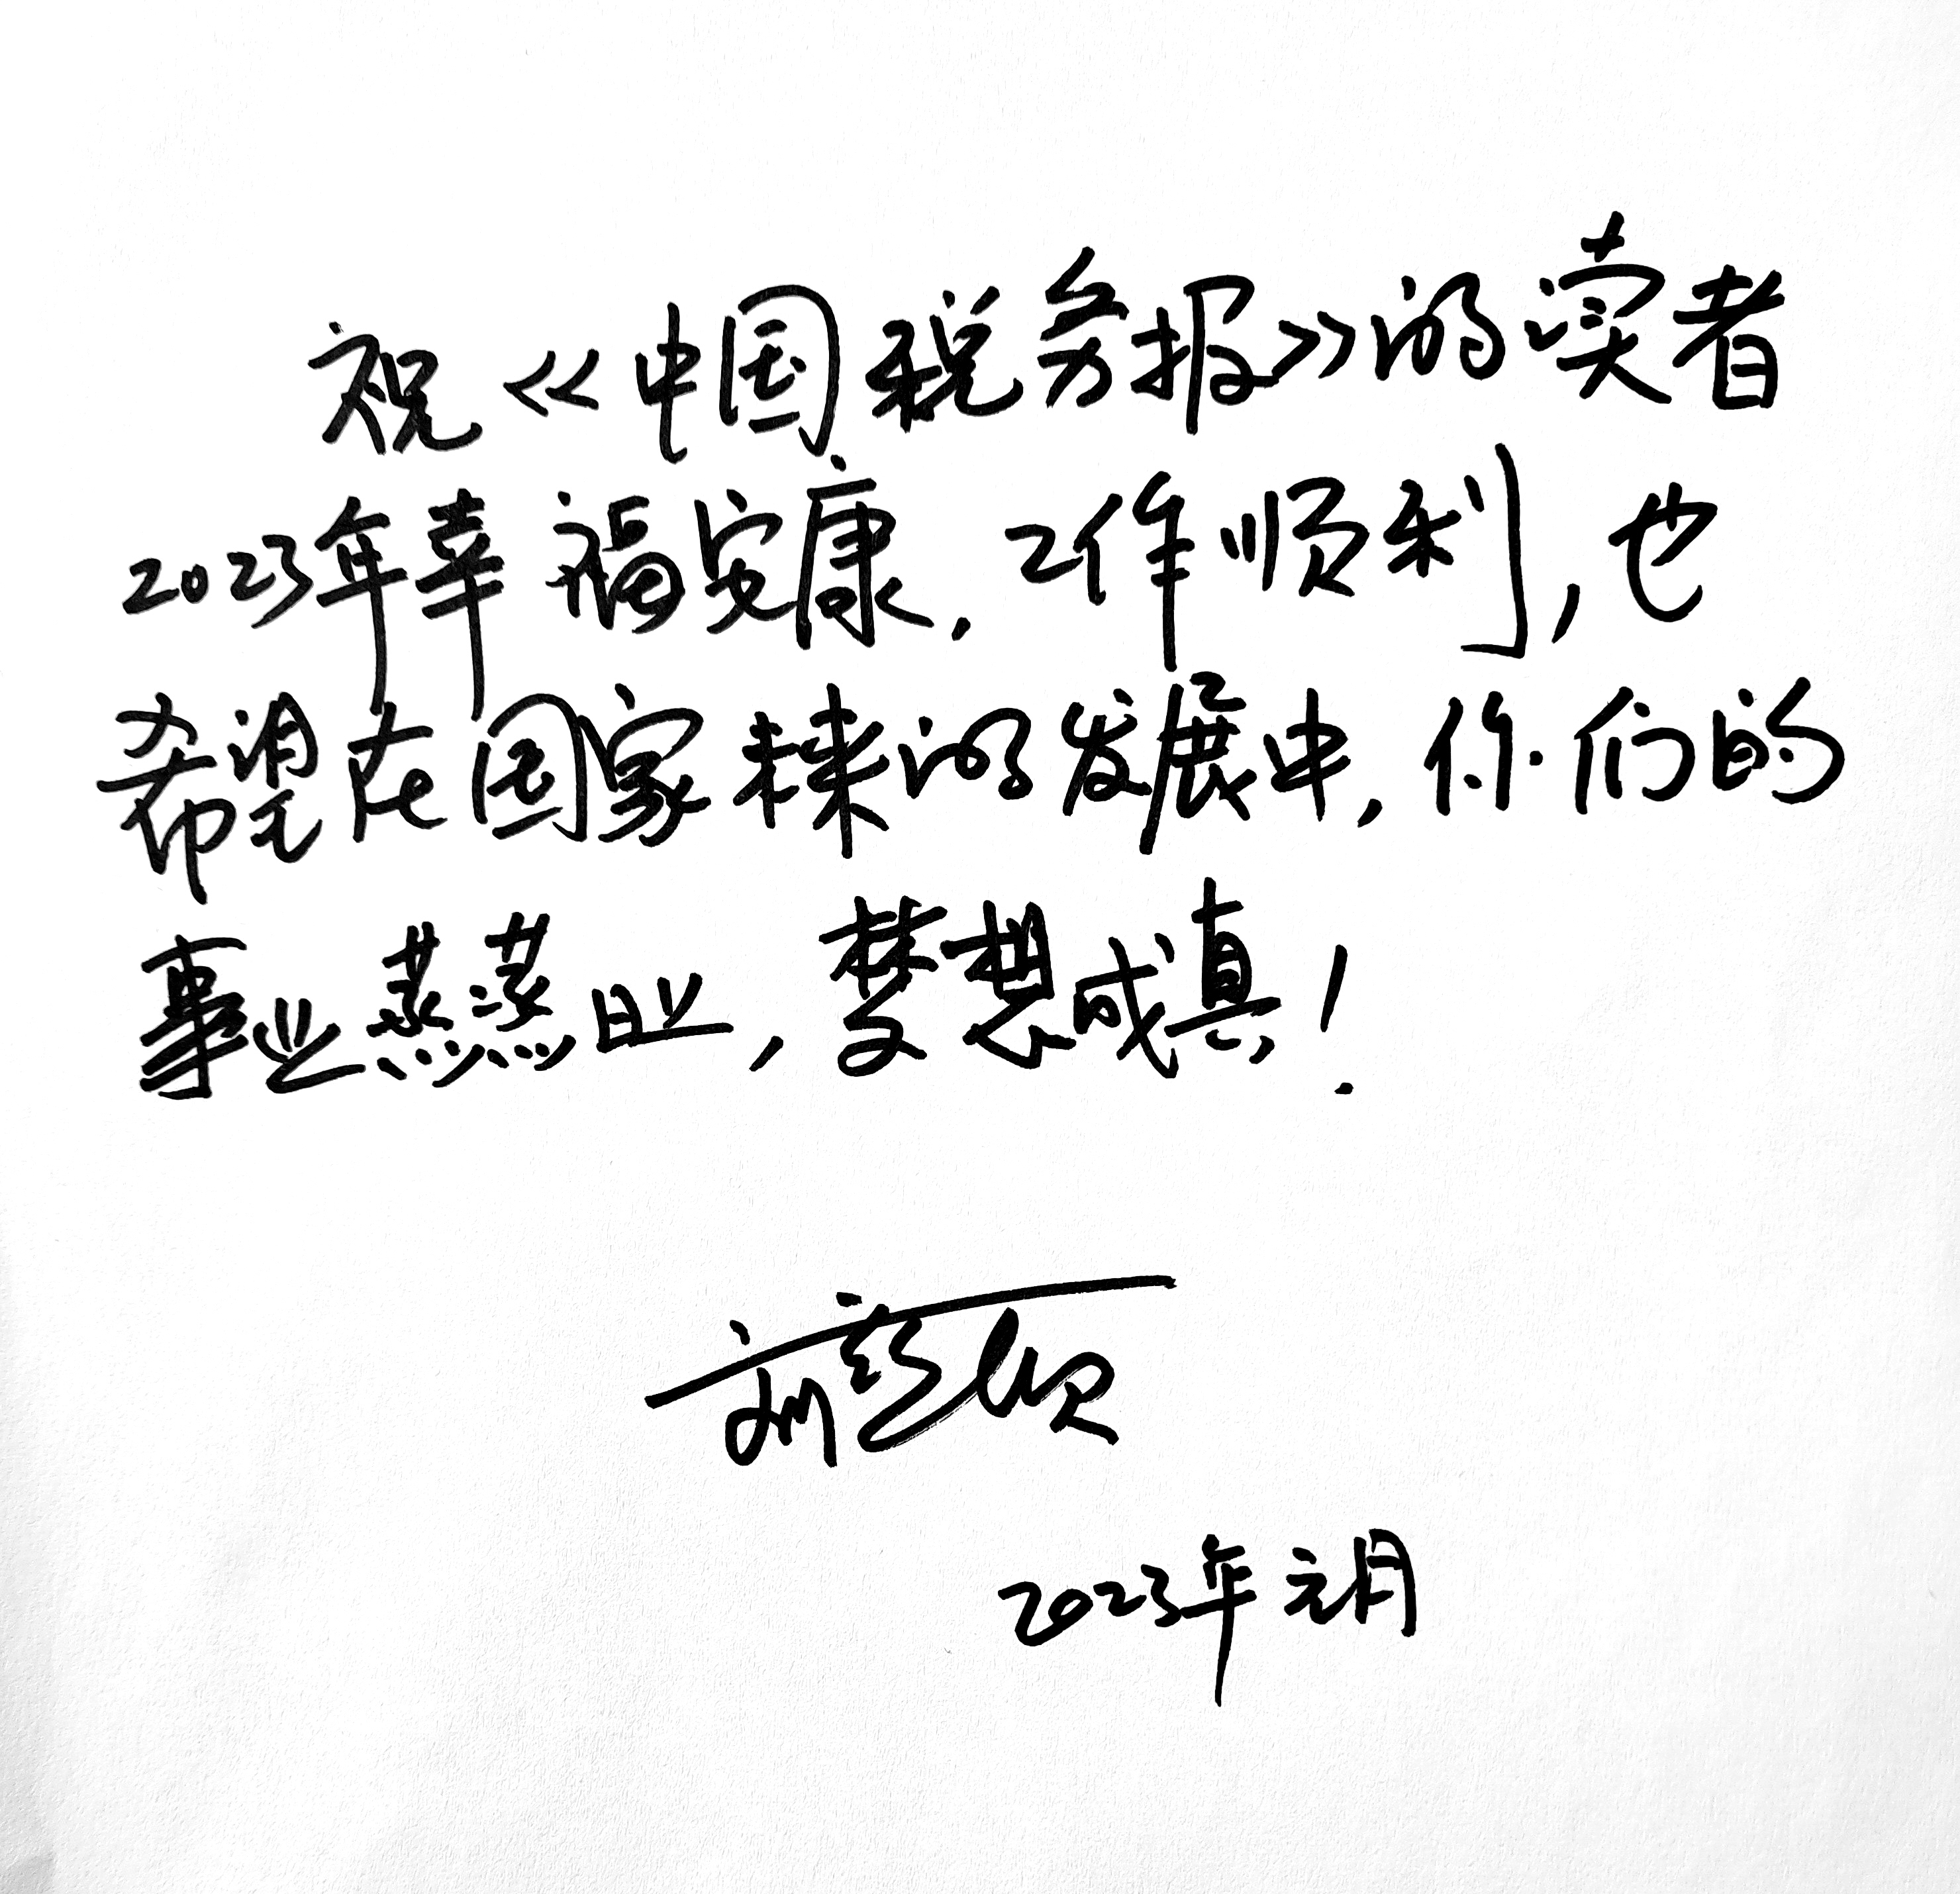 祝《中国税务报》的读者
2023年幸福安康,工作顺利,也
希望在国家未来的发展中,你们的
事业蒸蒸日上,梦想成真!
2023年元月